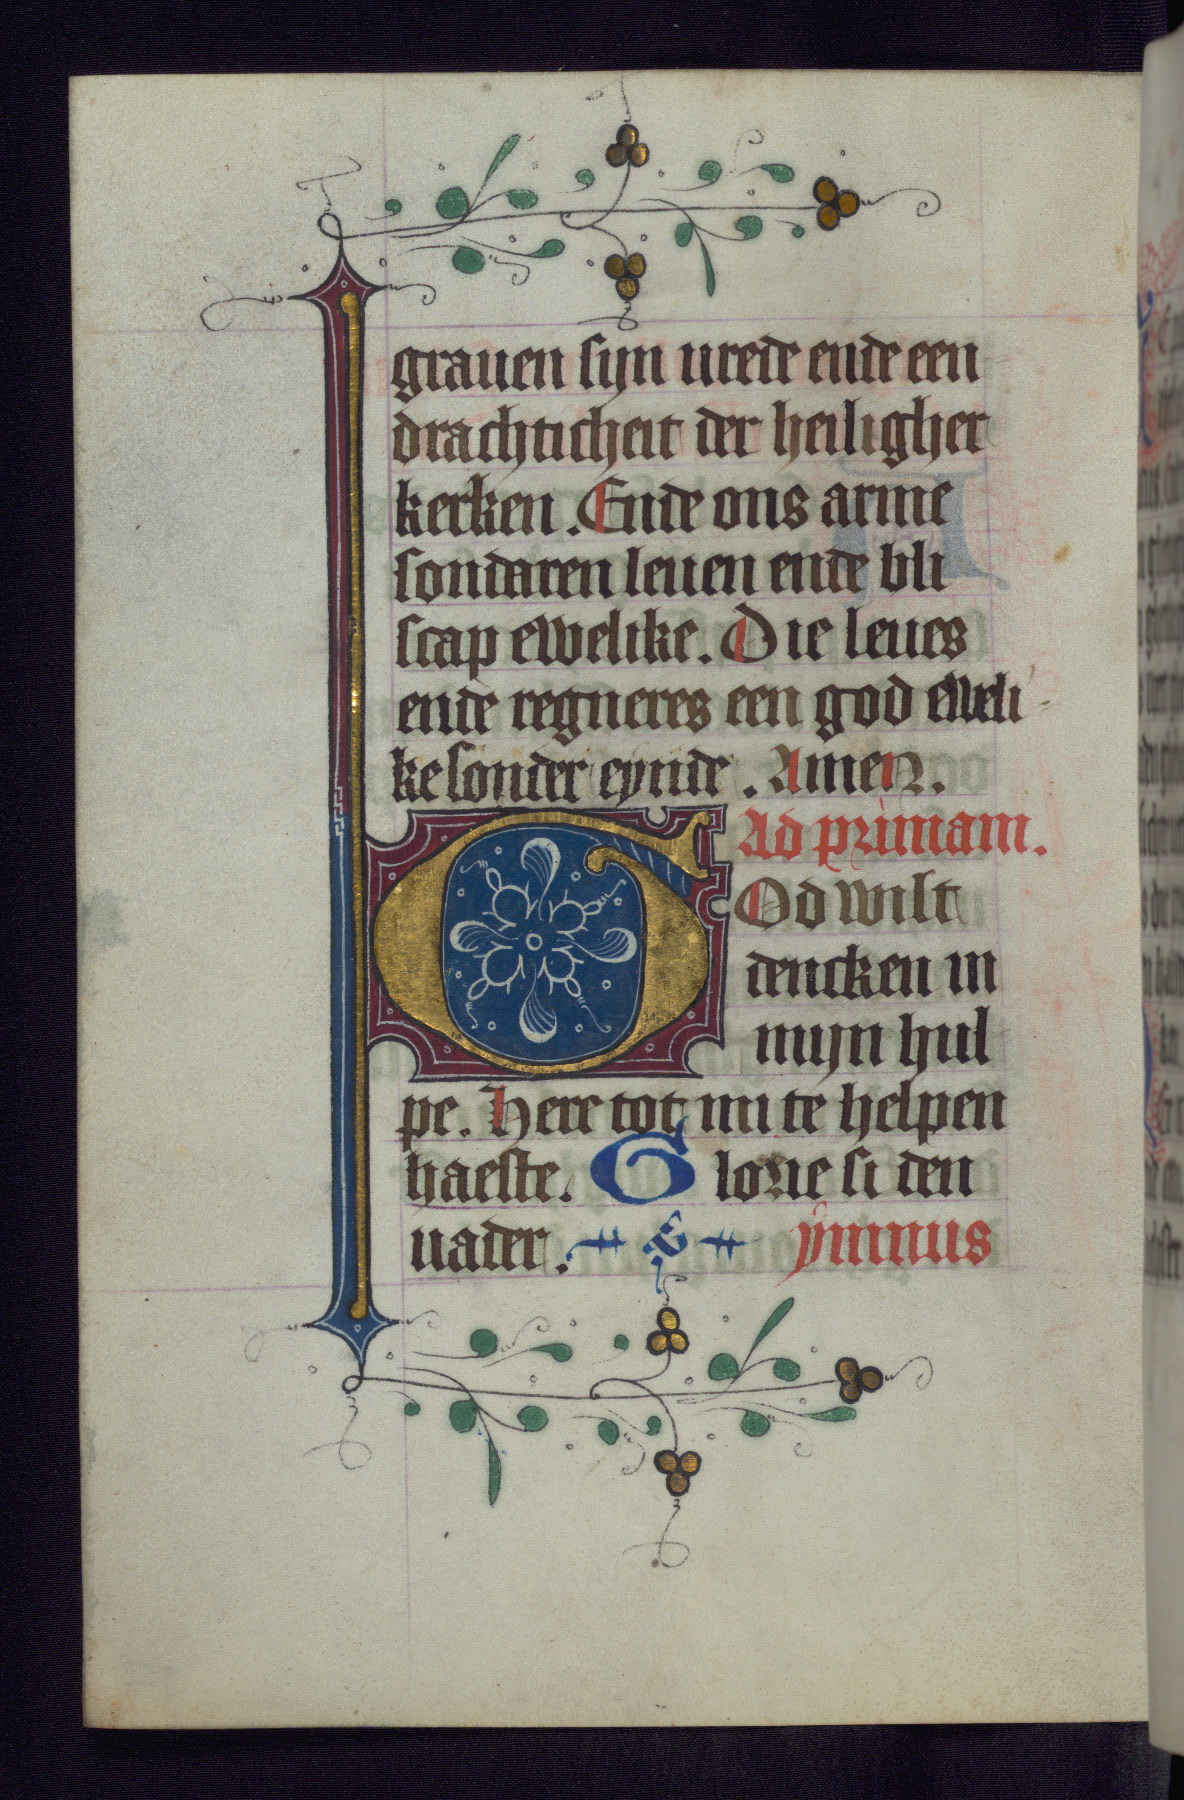 grauen sijn urede ende een
drachticheit der heiligher
kerken. Ende ons arme
sondaren leuen ende bli
scap ewelike. Die leues
ende regneres een god eweli
ke sonder eynde. Amen.
Ad primam.
GOd wilt
dencken in
mijn hul
pe. Here tot mi te helpen
haeste. Glorie si den
uader. ymnus